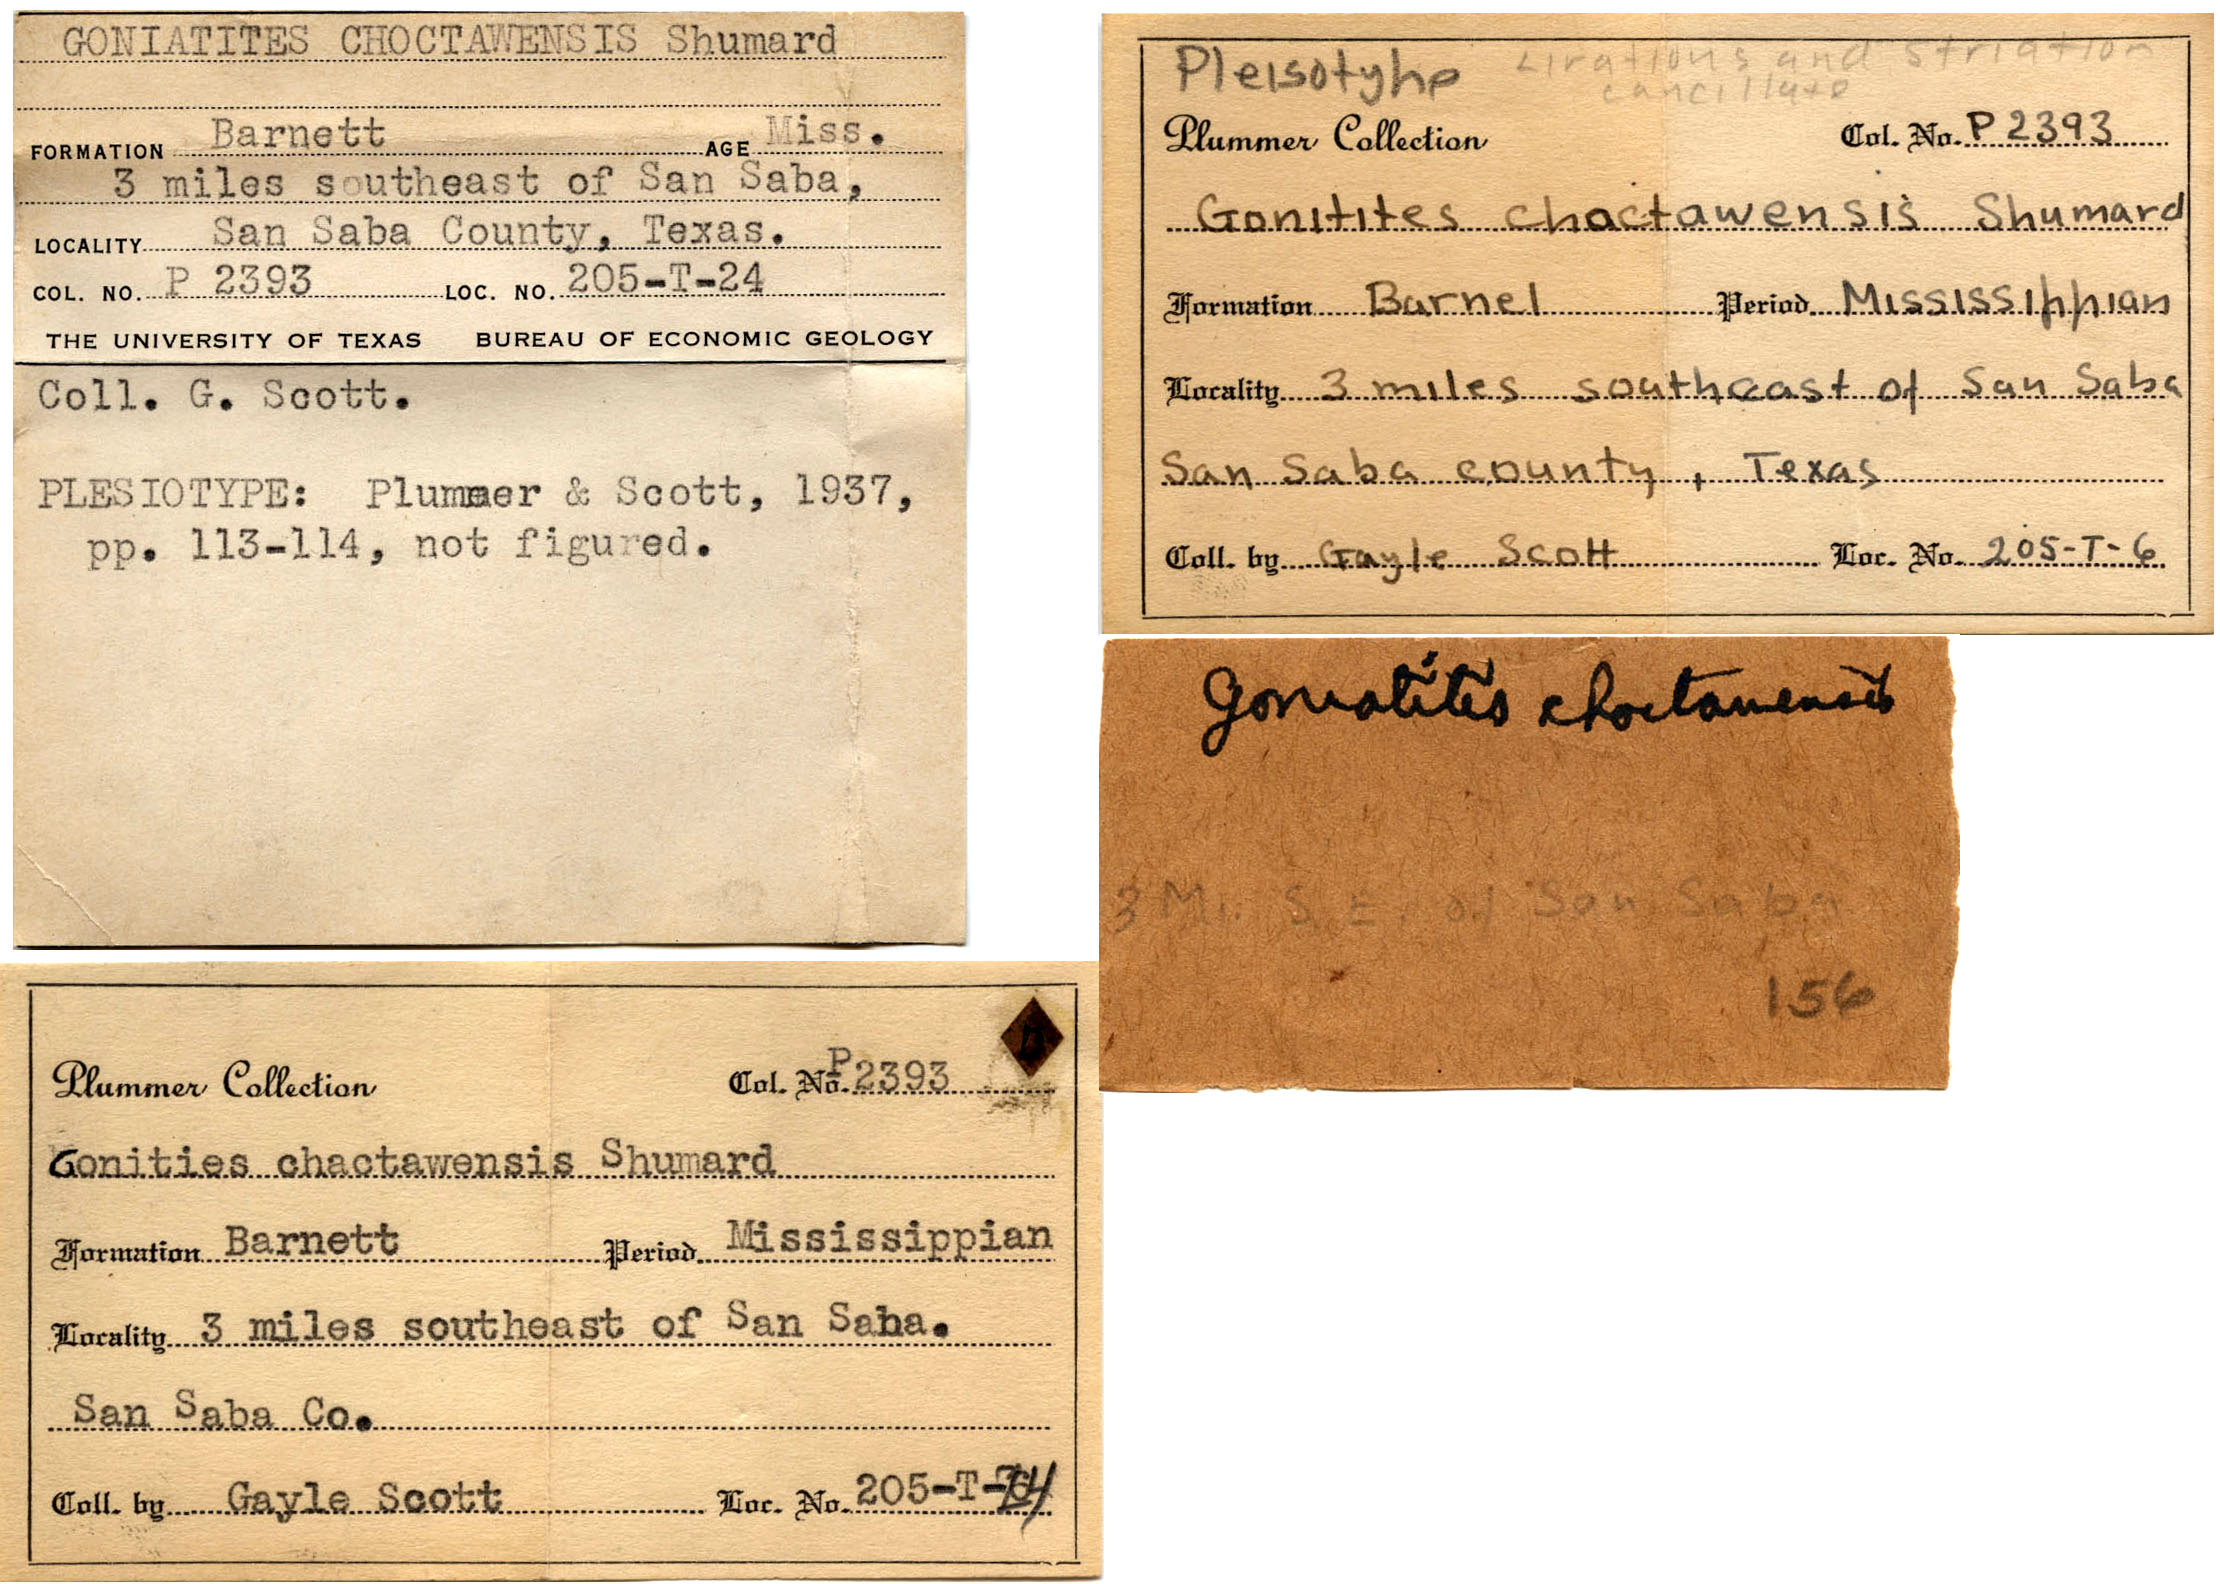 GONIATITES CHOCTAWENSIS Shumard
FORMATION Barnett AGE Miss.
3 miles southeast of San Saba,
LOCALITY San Saba County, Texas.
COL. NO. P 2393 LOC. NO. 205-T-24
THE UNIVERSITY OF TEXAS BUREAU OF ECONOMIC GEOLOGY
Coll. G. Scott.
PLESIOTYPE: Plummer & Scott, 1937,
pp. 113-114, not figured.
Pleisotyhe Lirations and striation
cancillate
Plummer Collection Col. No. P 2393
Gonitites choctawensis Shumard
Formation Barnel Period Mississippian
Locality 3 miles southeast of San Saba
San Saba county, Texas
Coll. by Gayle Scott Loc. No. 205-T-6
Goniatites choctawensis
3 Mi. S.E. of San Saba
156
Plummer Collection Col. No. P 2393
Gonities chactawensis Shumard
Formation Barnett Period Mississippian
Locality 3 miles southeast of San Saba.
San Saba Co.
Coll. by Gayle Scott Loc. No. 205-T-